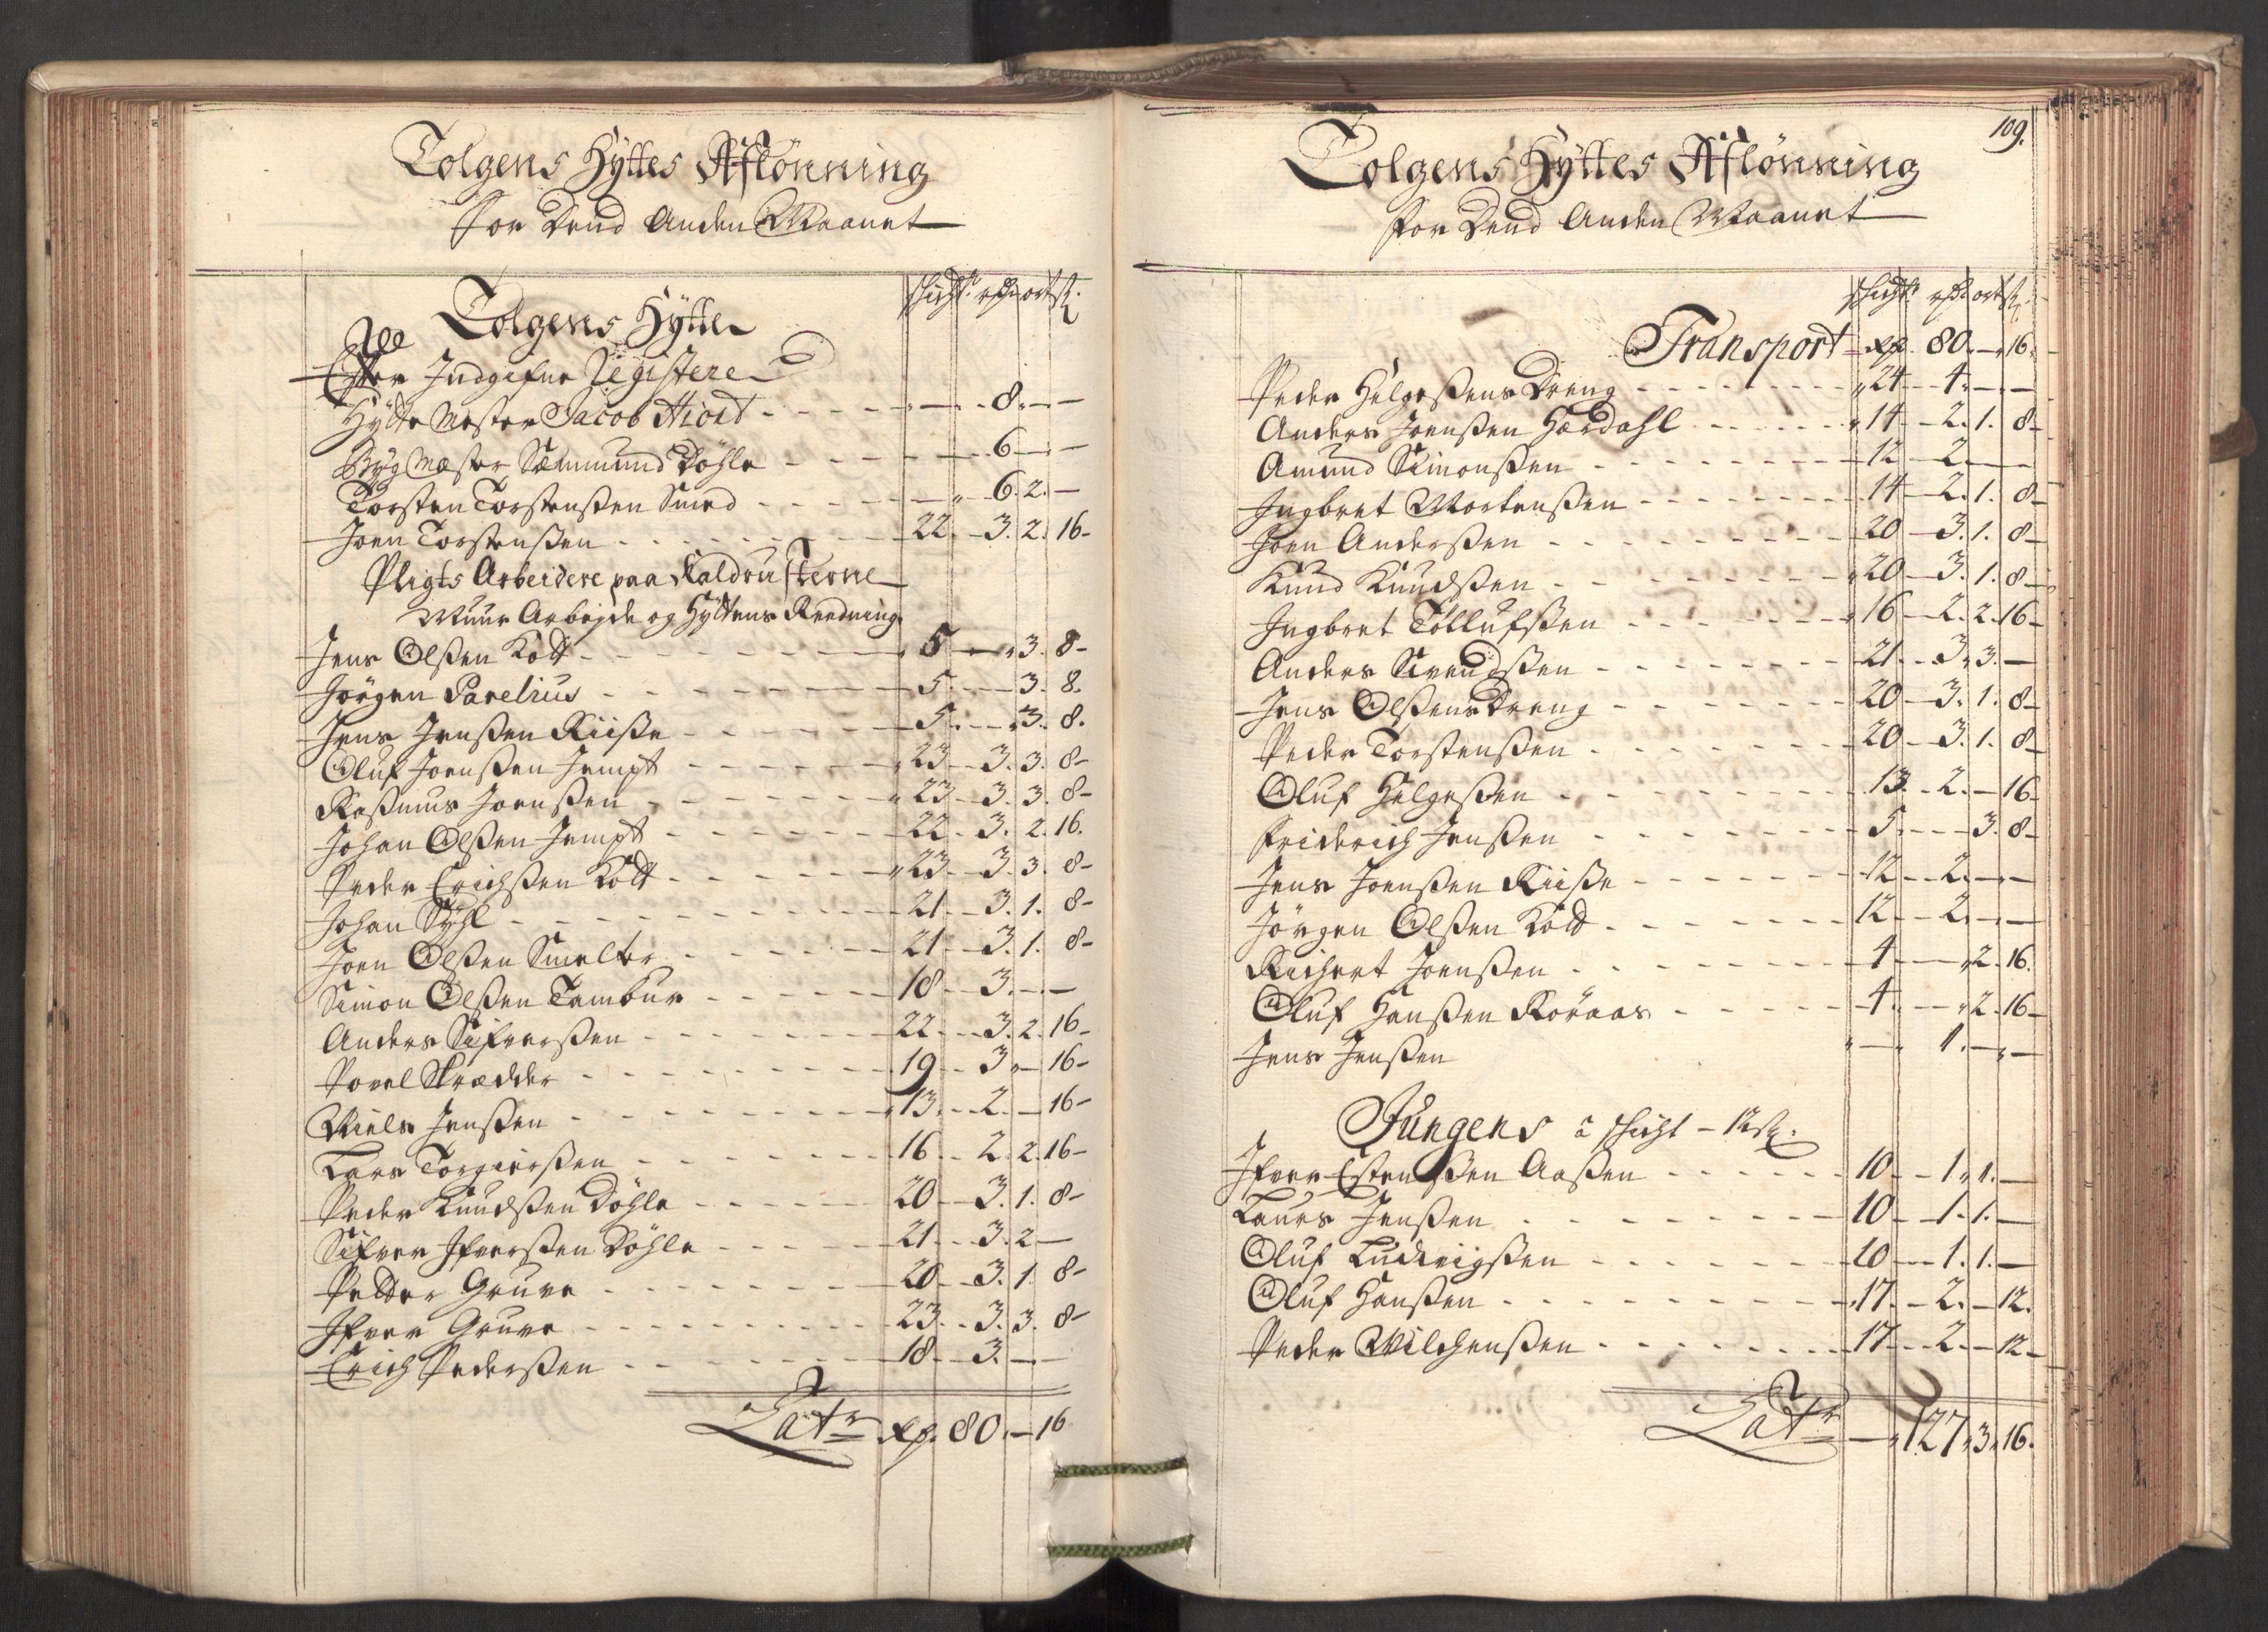 Tolgens Hyttes Aflönning
for Dend Anden Maanet
schicht rdr ort sk.
Tolgens Hytte
Efter Indgifne Registere
Hytte Mester Jacob Hiort - 8 - -
Byg Mester Sæmmund Döhle - 6 - -
Torsten Torstensßen Smed - 6. 2. -
Joen Torstensßen 22 - 3. 2. 16 -
Pligts Arbeidere paa Kaldrusterne
Muur Arbejde og Hyttens Reedning
Jens Olßen Kold 5 - 3. 8 -
Jörgen Parelius 5 - 3. 8.
Jens Jensßen Riiße 5 - 3. 8.
Oluf Joensßen Jempt 23 - 3. 3. 8 -
Rasmus Joensßen 23 - 3. 3. 8 -
Johan Olßen Jempt 22 - 3. 2. 16.
Peder Erichßen Kold 23 - 3. 3. 8 -
Johan Syhl 21 - 3. 1. 8 -
Joen Olßen Smelter 21 - 3. 1. 8 -
Simon Olßen Tambur 18 - 3. - -
Anders Sifverßen 22 - 3. 2. 16 -
Povel Skrædder 19 - 3 - 16 -
Niels Jensßen 13 - 2. - 16 -
Lars Torgierßen 16 - 2. 2. 16 -
Peder Knudßen Döhle 20 - 3. 1. 8 -
Sifver Ifverßen Döhle 21 - 3. 2 -
Petter Gruve 20 - 3. 1. 8 -
Ifver Gruve 23 - 3. 3. 8 -
Erich Pederßen 18 - 3. - -
Lat: Rd. 80. - 16
109.
Tolgens Hyttes Aflönning
for Dend Anden Maanet
schicht rdr ort sk.
Transport Rd. 80. - 16.
Peder Helgeßens Dreng 24 - 4. - -
Anders Joensßen Hærdahl 14 - 2. 1. 8 -
Amund Simonßen 12 - 2. - -
Ingbret Mortenßen 14 - 2. 1. 8 -
Joen Anderßen 20 - 3. 1. 8 -
Knud Knudßen 20 - 3. 1. 8 -
Ingbret Tollufsßen 16 - 2. 2. 16 -
Anders Svendßen 21 - 3. 3. -
Jens Olßens Dreng 20 - 3. 1. 8 -
Peder Torstenßen 20 - 3. 1. 8 -
Oluf Helgeßen 13 - 2. - 16 -
Friderich Jensßen 5 - 3. 8 -
Jens Joensßen Riiße 12 - 2. - -
Jörgen Olßen Kold 12 - 2. - -
Richert Joensßen 4 - 2. 16.
Oluf Hansßen Röraas 4 - 2. 16 -
Jens Jensßen - 1. - -
Jungens à schicht - 12 sk.
Ifver Estensßen Aaßen 10 - 1. 1. -
Laurs Jensßen 10 - 1. 1. -
Oluf Ludvigßen 10 - 1. 1. -
Oluf Hansßen 17 - 2. - 12.
Peder Wilchensßen 17 - 2. - 12 -
Lat: - 127. 3. 16.